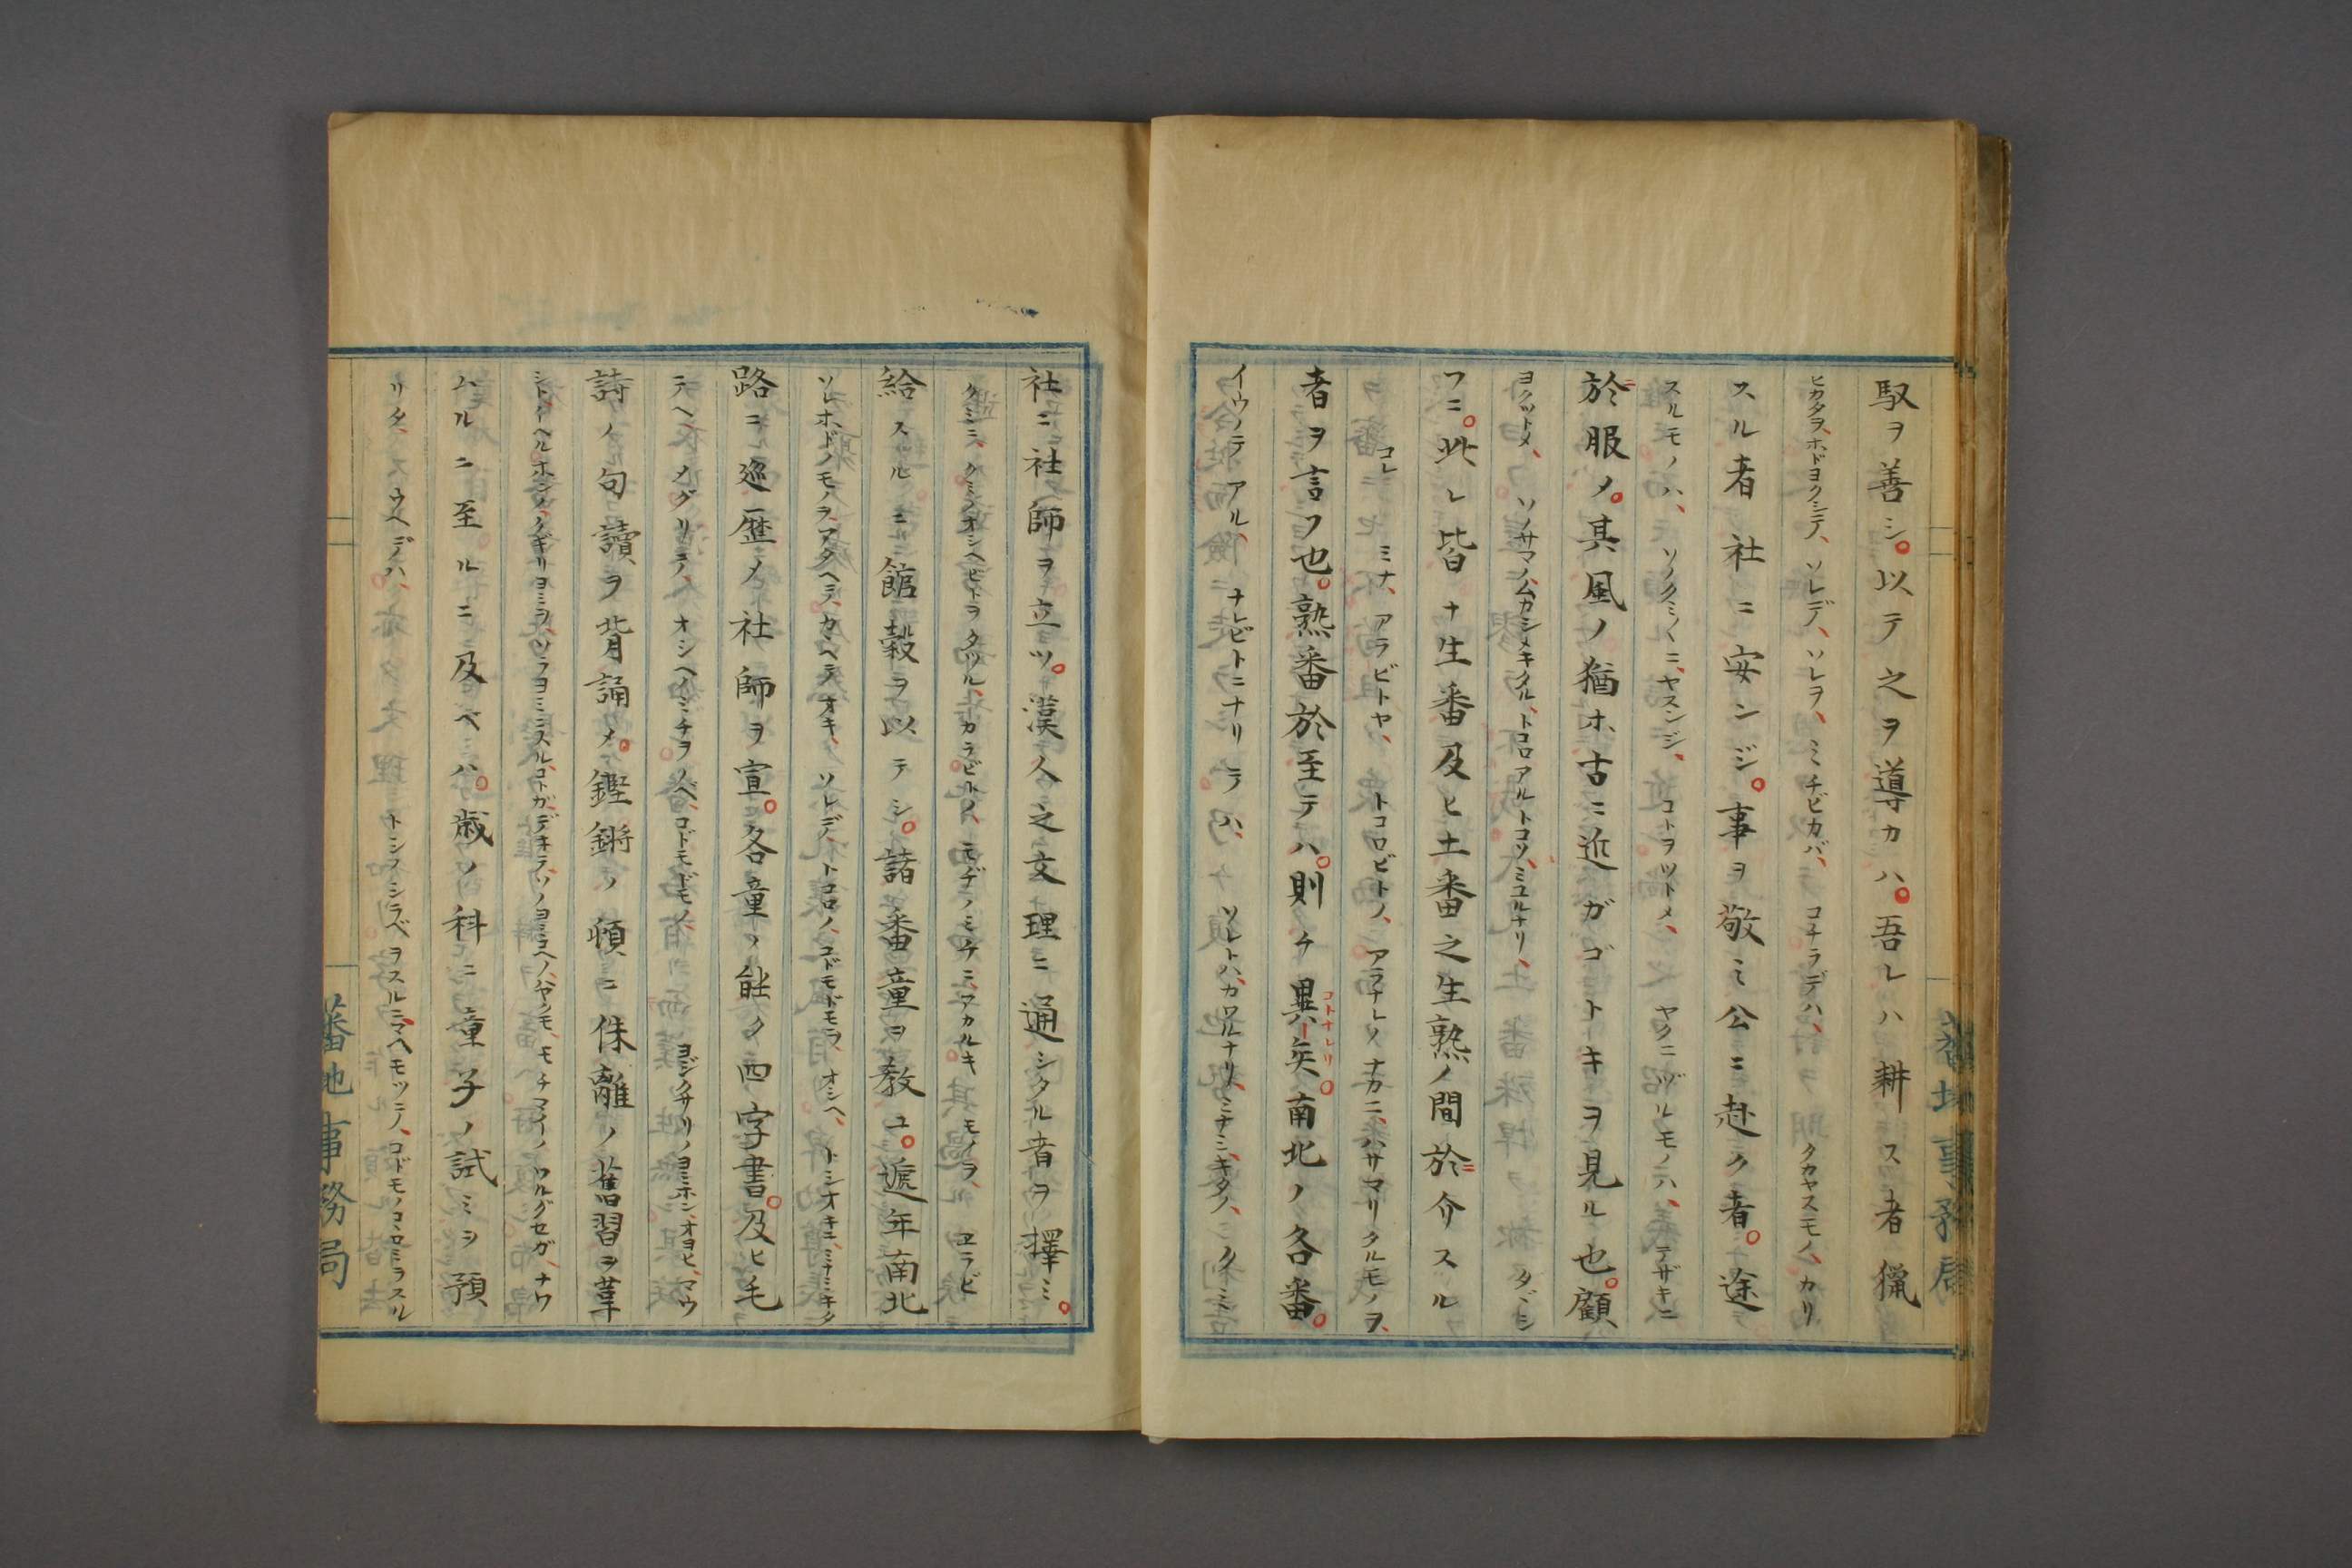 馭ヲ善シ。以テ之ヲ導カハ。吾レハ耕ス者獵
ヒカタヲ、ホドヨクシテ、ソレデ、ソレヲ、ミチビカバ、コチラデハ、タカヤスモノ、カリ
スル者社ニ安ンジ。事ヲ敬ミ公ニ赴ク者。途
スルモノハ、ソノクミ〱ニ、ヤスンジ、コトヲツトメ、ヤクニヅルモノハ、テザキニ
於服メ。其風ノ猶ホ古ニ近ガゴトキヲ見ル也。顧
ヨクツトメ、ソノサマノ、ムカシメキタル、トコロアルトコソ、ミユルナリ、タヾシ
フニ。此レ皆ナ生番及ヒ土番之生熟ノ間於介スル
コレミナ、アラビトヤ、トコロビトノ、アラナレノナカニ、ハサマリタルモノヲ、
者ヲ言フ也。熟番於至テハ。則チ異矣。南北ノ各番。
コトナレリ
イウノテアル、ナレビトニナリテハ、ソレトハ、カワルナリ、ミナミ、キタノ、クミ
社ニ社師ヲ立ツ。漢人之文理ニ通シタル者ヲ擇ミ。
クミニ、クミノオシヘビトヲタツル、カラビトノ、モヂノミチニ、アカルキモノヲ、ヱラビ
給スルニ館穀ヲ以テシ。諸番童ヲ教ユ。遞年南北
ソレホドノモノヲ、アタヘテ、カヽヘテオキ、ソレデ、トコロノ、コドモドモヲ、オシヘ、トシオキニミナミキタ
路ニ巡歴メ社師ヲ宣。各童ノ能ク四字書。及ヒ毛
テヘ、メグリテ、オシヘノミチヲノベ、コドモドモノ、ヨジクサリノヨミホン、オヨヒ、マウ
詩ノ句讀ヲ背誦メ。鏗鏘ノ頓ニ侏離ノ舊習ヲ革
ムルニ至ルニ及ベハ。歳ノ科ニ童子ノ試ミヲ預
蕃地事務局